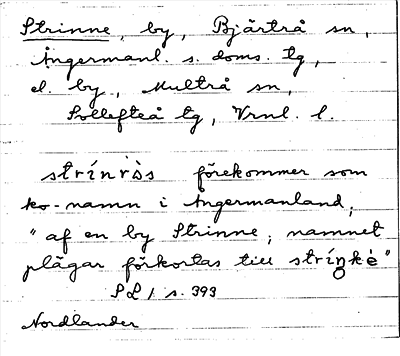 Strinne, by, Bjärtrå sn,
Ångermanl. s. doms. tg,
el. by., Multrå sn,
Sollefteå tg, Vrnl. l.
strínròs förekommer som
ko-namn i Ångermanland;
"af en by Strinne; namnet
plägar förkortas till stríŋkè"
SL 1 s. 393
Nordlander